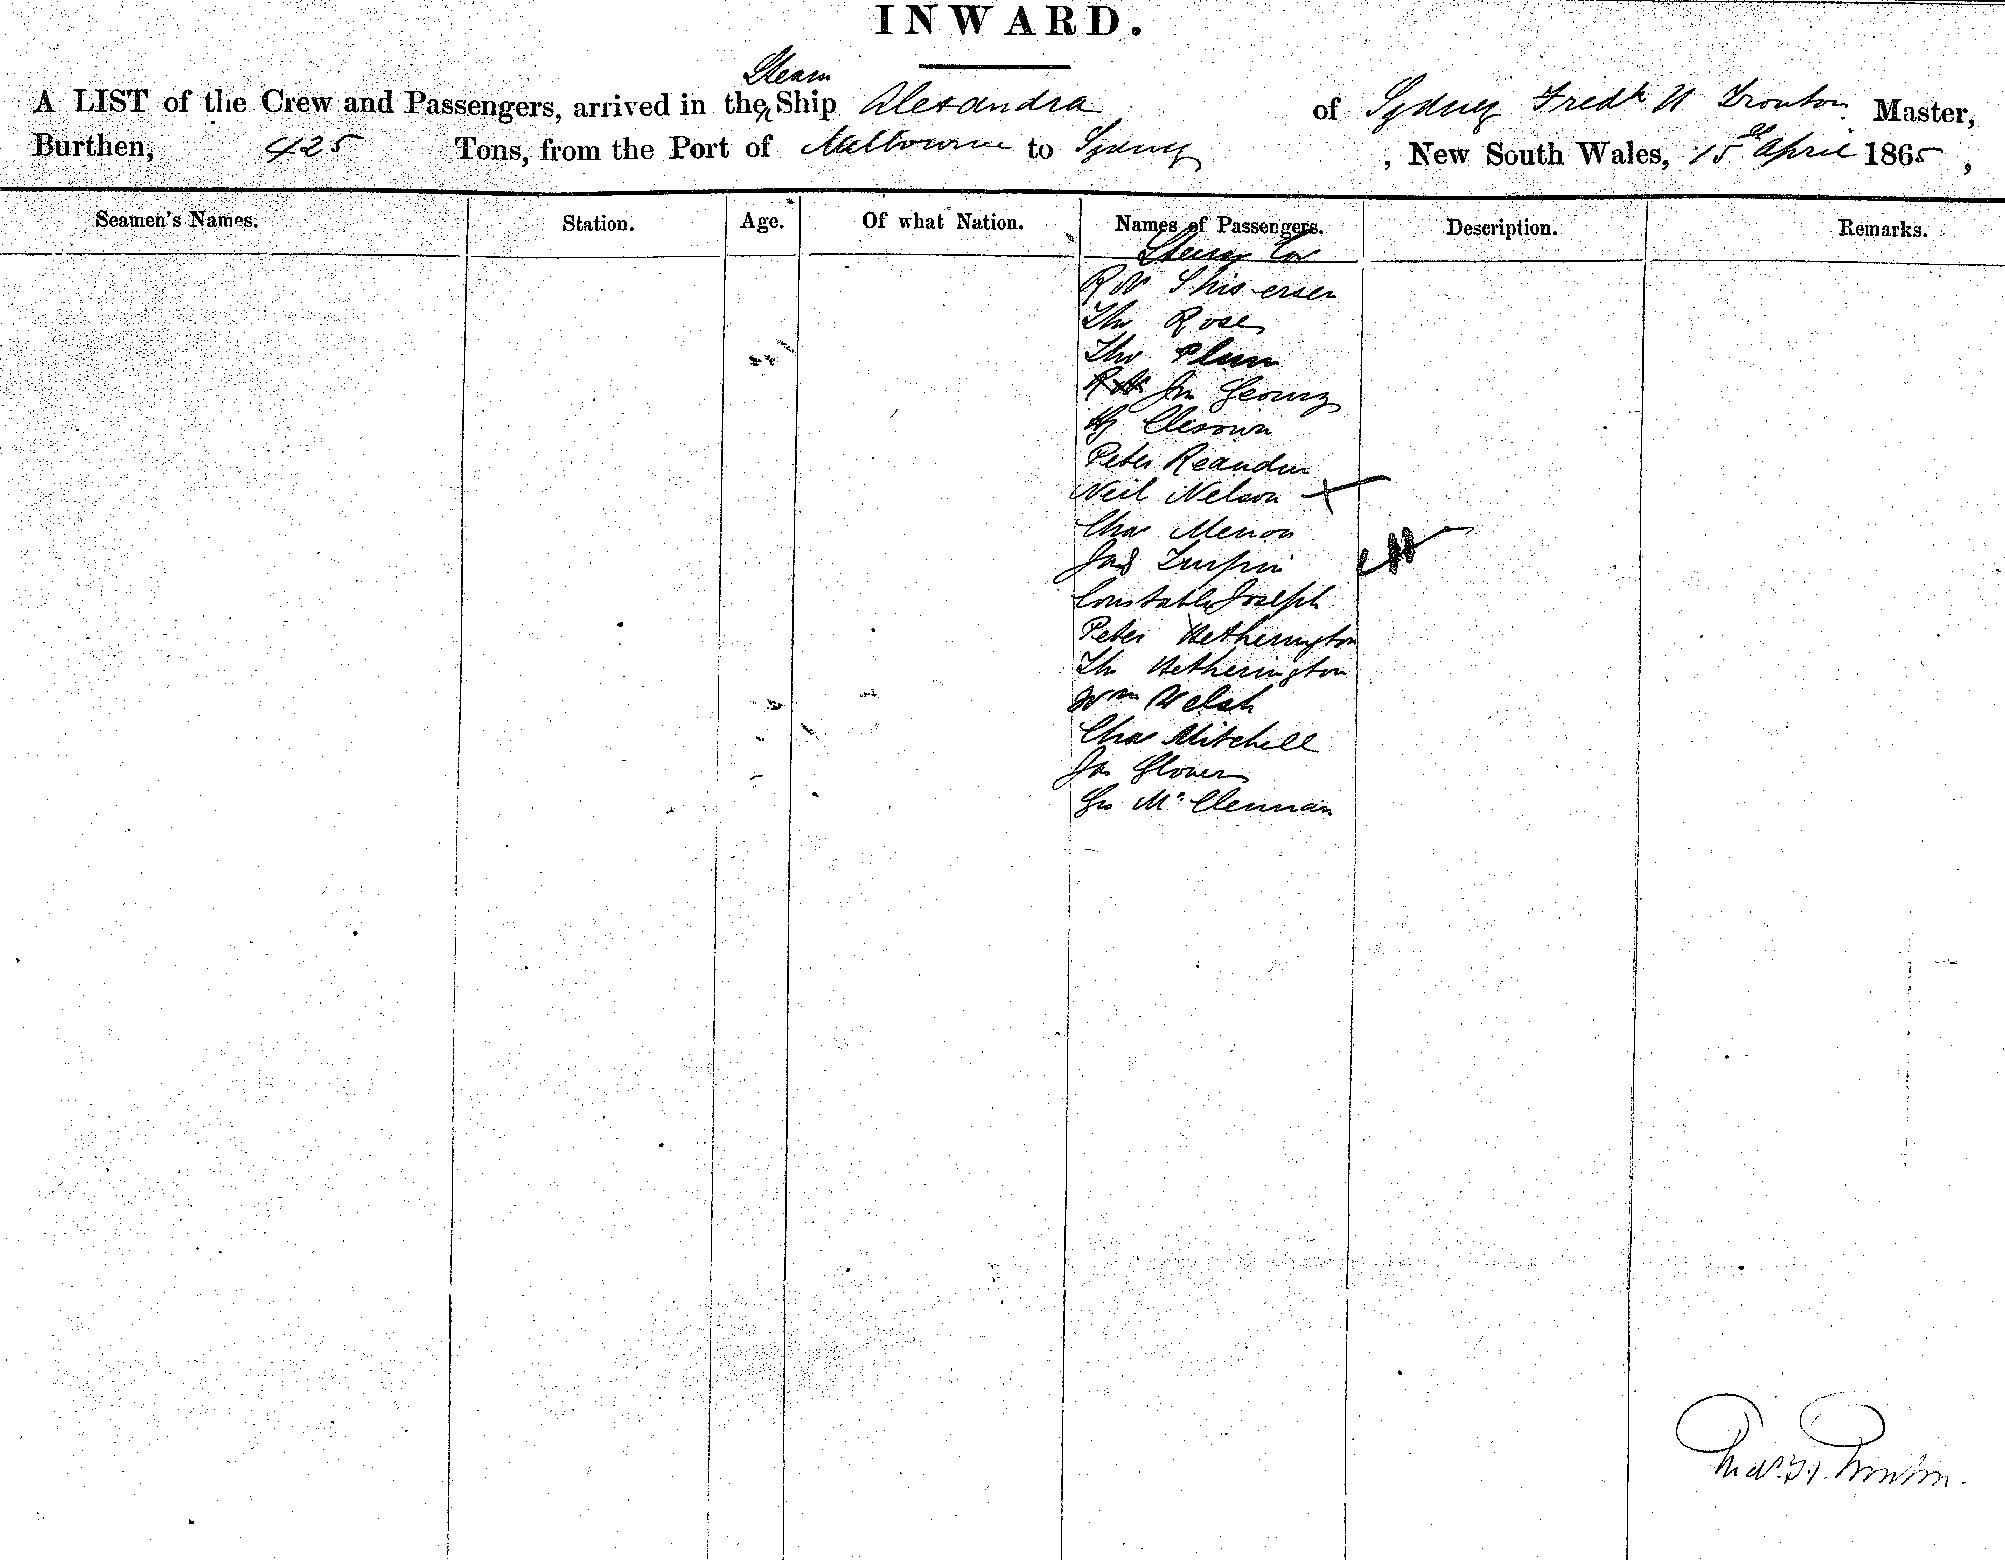 INWARD.
Steam
A LIST of the Crew and Passengers, arrived in the Ship Alexandra of Sydney Fredk H Trouton Master,
Burthen, 425 Tons, from the Port of Melbourne to Sydney, New South Wales, 15 April 1865,
Seamen's Names. Station. Age. Of what Nation. Names of Passengers. Description. Remarks.
R W
Th Rose
Tho Plum
Jn George
Hy
Peter
Neil Nelson
Chas
Jas Turpin
Constable Joseph
Peter Hetherington
Th Hetherington
Wm Welsh
Chas Mitchell
Jn Glover
Mc Clennan
Trouton